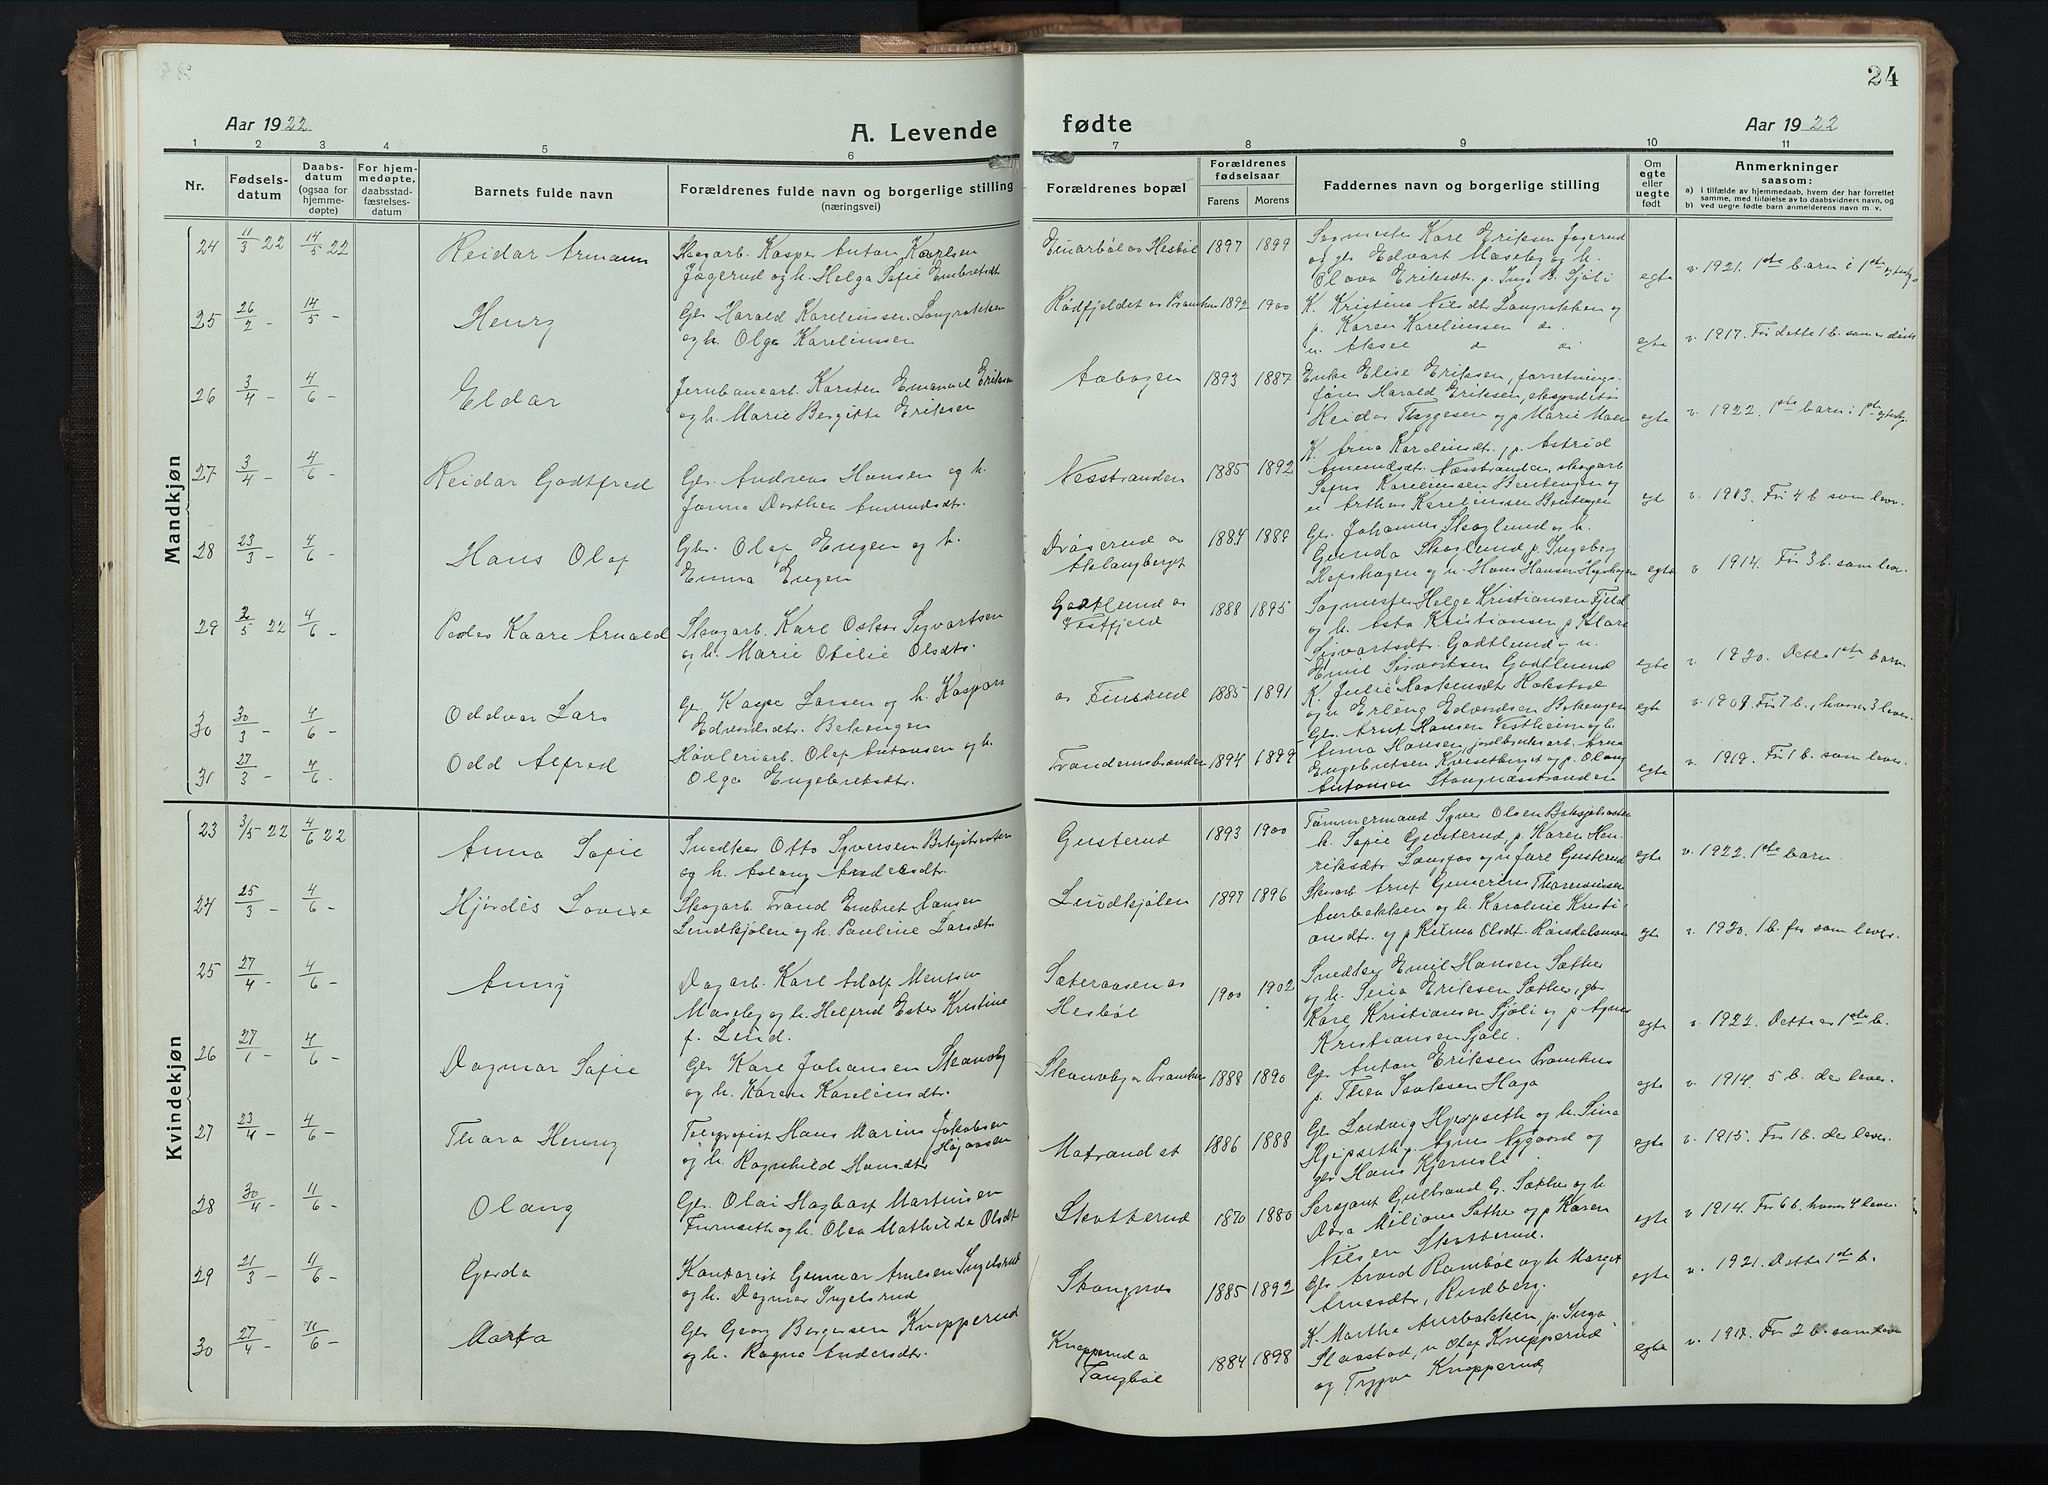 24
Aar 1922
A. Levende
fødte
Aar 1922
1 2 3 4 5 6 7 8 9 10 11
Nr.
Fødselsdatum
Daabsdatum (ogsaa for hjemmedøpte)
For hjemmedøpte, daabsstadfæstelsesdatum
Barnets fulde navn
Forældrenes fulde navn og borgerlige stilling
(næringsvei)
Forældrenes bopæl
Forældrenes fødselsaar
Farens Morens
Faddernes navn og borgerlige stilling
Om egte eller uegte født
Anmerkninger
saasom:
a) i tilfælde av hjemmedaab, hvem der har forrettet samme, med tilføielse av to daabsvidners navn, og
b) ved uegte fødte barn anmelderens navn m. v.
Mandkjøn
24 11/3 22 14/5 22 Reidar Armann
Skogarb. Kasper Anton Karlsen
Jøgerud og h. Helga Sofie Embretsdt
1897 1899
Sagmester Karl Eriksen Jøgerud
og gbr Edvart Maseby og h.
Olava Eriksdt. p. Inga B. Sjøli
egte
v. 1921. 1ste barn i 1ste
25 26/2 - 14/5 - Henry
Gbr Harald Karelinssen Langrakken
og h. Olga Karelinssen
Rødfjeldet 1892 1900
K. Kristine Nilsdt Langrakken og
p. Karen Karelinssen
egte
v. 1917. Før dette 1 b. som
26 3/4 - 4/6 - Eldar
Jernbanearb. Karsten Emanuel Eriksen
og h. Marie Bergitte Eriksen
Aabogen 1893 1887
Enke Elise Eriksen, forretnings-
fører Harald Eriksen, ekspeditør
Reidar Tryggesen og p Marie Moen
egte
v. 1922. 1ste barn i 1ste
27 3/4 - 4/6 - Reidar Godtfred
Gbr. Andreas Hansen og h.
Janna Dorthea Amundsdtr.
Nesstranden 1885 1892
K. Anna Karelinsdt. p. Astrid
Amundsdt. Næsstranden, skogarb
Karelinssen Bentengen og
u Arthur Karelinssen Bentengen
egte
v. 1913. Før 4 b som lever.
28 23/3 - 4/6 - Hans Olaf
Gbr. Olaf Engen og h.
Emma Engen
1884 1889
Gbr. Johannes Skoglund og h.
Gunda Skoglund, p. Ingeborg
Repshagen og u. Hans Hansen Repshagen
egte
v 1914. Før 3 b. som lever.
29 2/5 22 4/6 - Peder Kaare Arnold
Skogarb. Karl Oskar Sigvartsen
og h. Marie Otelie Olsdtr.
Godtlund av
Vestfjeld
1888 1895
Sagmester Helge Kristiansen Fjeld
og h. Asta Kristiansen p. Klara
Sigvartsdt. Godtlund og u.
Emil Sigvartsen Godtlund
egte
v. 1920. Dette 1ste barn
30 30/3 - 4/6 - Oddvar Lars
Gbr. Kasper Larsen og h. Kaspara
Edvardsdtr. Bekengen
Finsrud 1885 1891
K. Julie Haakensdtr Hokstad
og u Erling Edvardsen Bekengen
egte
v. 1909. Før 7 b., hvorav 3 lever.
31 27/3 - 4/6 - Odd Alfred
Høvleriarb. Olaf Antonsen og h.
Olga Engebretsdtr.
1894 1899
Gbr. Arnt Hansen Vestheim og h.
Anna Hansen, jordbruksarb. Arne
Engebretsen Kvisetberget og p. Olaug
Antonsen Skongnæsstranden
egte
v. 1919. Før 1 b. som lever.
Kvindekjøn
23 3/5 22 4/6 22 Anna Sofie
Snedker Otto Syversen
og h. Aslaug Andersdt.
Gusterud 1893 1900
Tømmermand Syver Olsen
h. Sofie Gusterud, p. Karen Hen-
riksdtr. Langfos og u Jarl Gusterud
egte
v. 1922. 1ste barn.
24 25/3 - 4/6 - Hjørdis Lovise
Skogarb. Trond Embret Hansen
Lindkjølen og h. Pauline Larsdtr
Lindkjølen 1897 1896
Skogarb Arnt Gunerius
Aurbakken og h. Karoline Kristi-
ansdtr. og p Hilma Olsdt.
egte
v. 1920. 1 b. før som lever.
25 27/4 - 4/6 - Anny
Dagarb. Karl Adolf
Maseby og h. Helfrid Ester Kristine
f. Lind.
Sæteraasen av
Hesbøl
1900 1902
Snedker Emil Hansen Sæther
og h. Sina Eriksen Sæther, gbr
Karl Kristiansen Sjøli og p Agnes
Kristiansen Sjøli.
egte
v. 1922. Dette er 1ste b.
26 27/1 - 4/6 - Dagmar Sofie
Gbr Karl Johansen Skansby
og h. Karen Karelinsdtr.
1888 1890
Gbr Anton Eriksen Bramhus
p. Thea Isaksen Haga
egte
v. 1914. 5 b. der lever.
27 23/4 - 4/6 - Thora Henny
Telegrafist Hans Marius Jakobsen Højaasen
og h. Ragnhild Hansdtr
Matrand st 1886 1888
Gbr Ludvig Hjerpseth og h. Sina
Hjerpseth p. Agnes Nygaard og
gbr Hans Kjernsli
egte
v. 1915. Før 1 b. der lever.
28 30/4 - 11/6 - Olaug
Gbr. Olai Hagbart Martinsen
Furuseth og h. Olea Mathilde Olsdt
Skotterud 1870 1880
Sersjant Gulbrand G. Sæther og h.
Dora Miliana Sæther og p Karen
Nilsen Skotterud.
egte
v 1914. Før 6 b. hvorav 4 lever.
29 21/3 - 11/6 - Gerda
Kontorist Gunnar Arnesen Ingelsrud
og h. Dagmar Ingelsrud
Skongnæs 1885 1892
Gbr Arvid Rambøl og h Margit
Arnesdtr, Rudberg.
egte
v. 1921. Dette 1ste b.
30 27/4 - 11/6 - Marta
Gbr Georg Bergersen Knapperud
og h. Ragna Andersdt.
Knapperud av
Tangbøl
1884 1898
K. Marthe Aurbakken, p. Inga
Slaastad, u Olaf Knapperud
og Trygve Knapperud
egte
v. 1917. Før 2 b. som lever